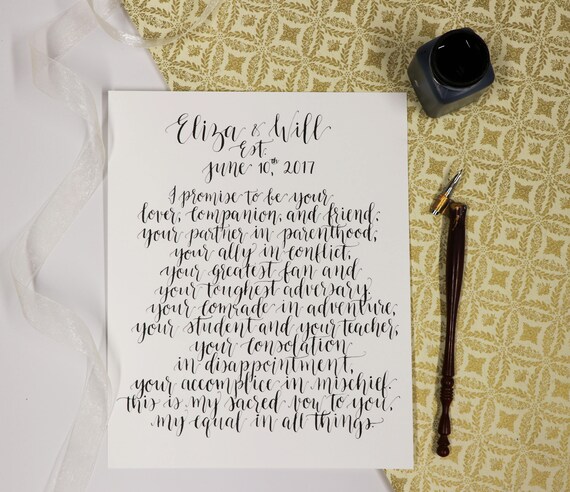 Eliza & Will
Est.
June 10th, 2017
I promise to be your
lover, companion, and friend:
your partner in parenthood,
your ally in conflict,
your greatest fan and
your toughest adversary,
your comrade in adventure,
your student and your teacher,
your consolation
in disappointment,
your accomplice in mischief.
this is my sacred vow to you,
my equal in all things.